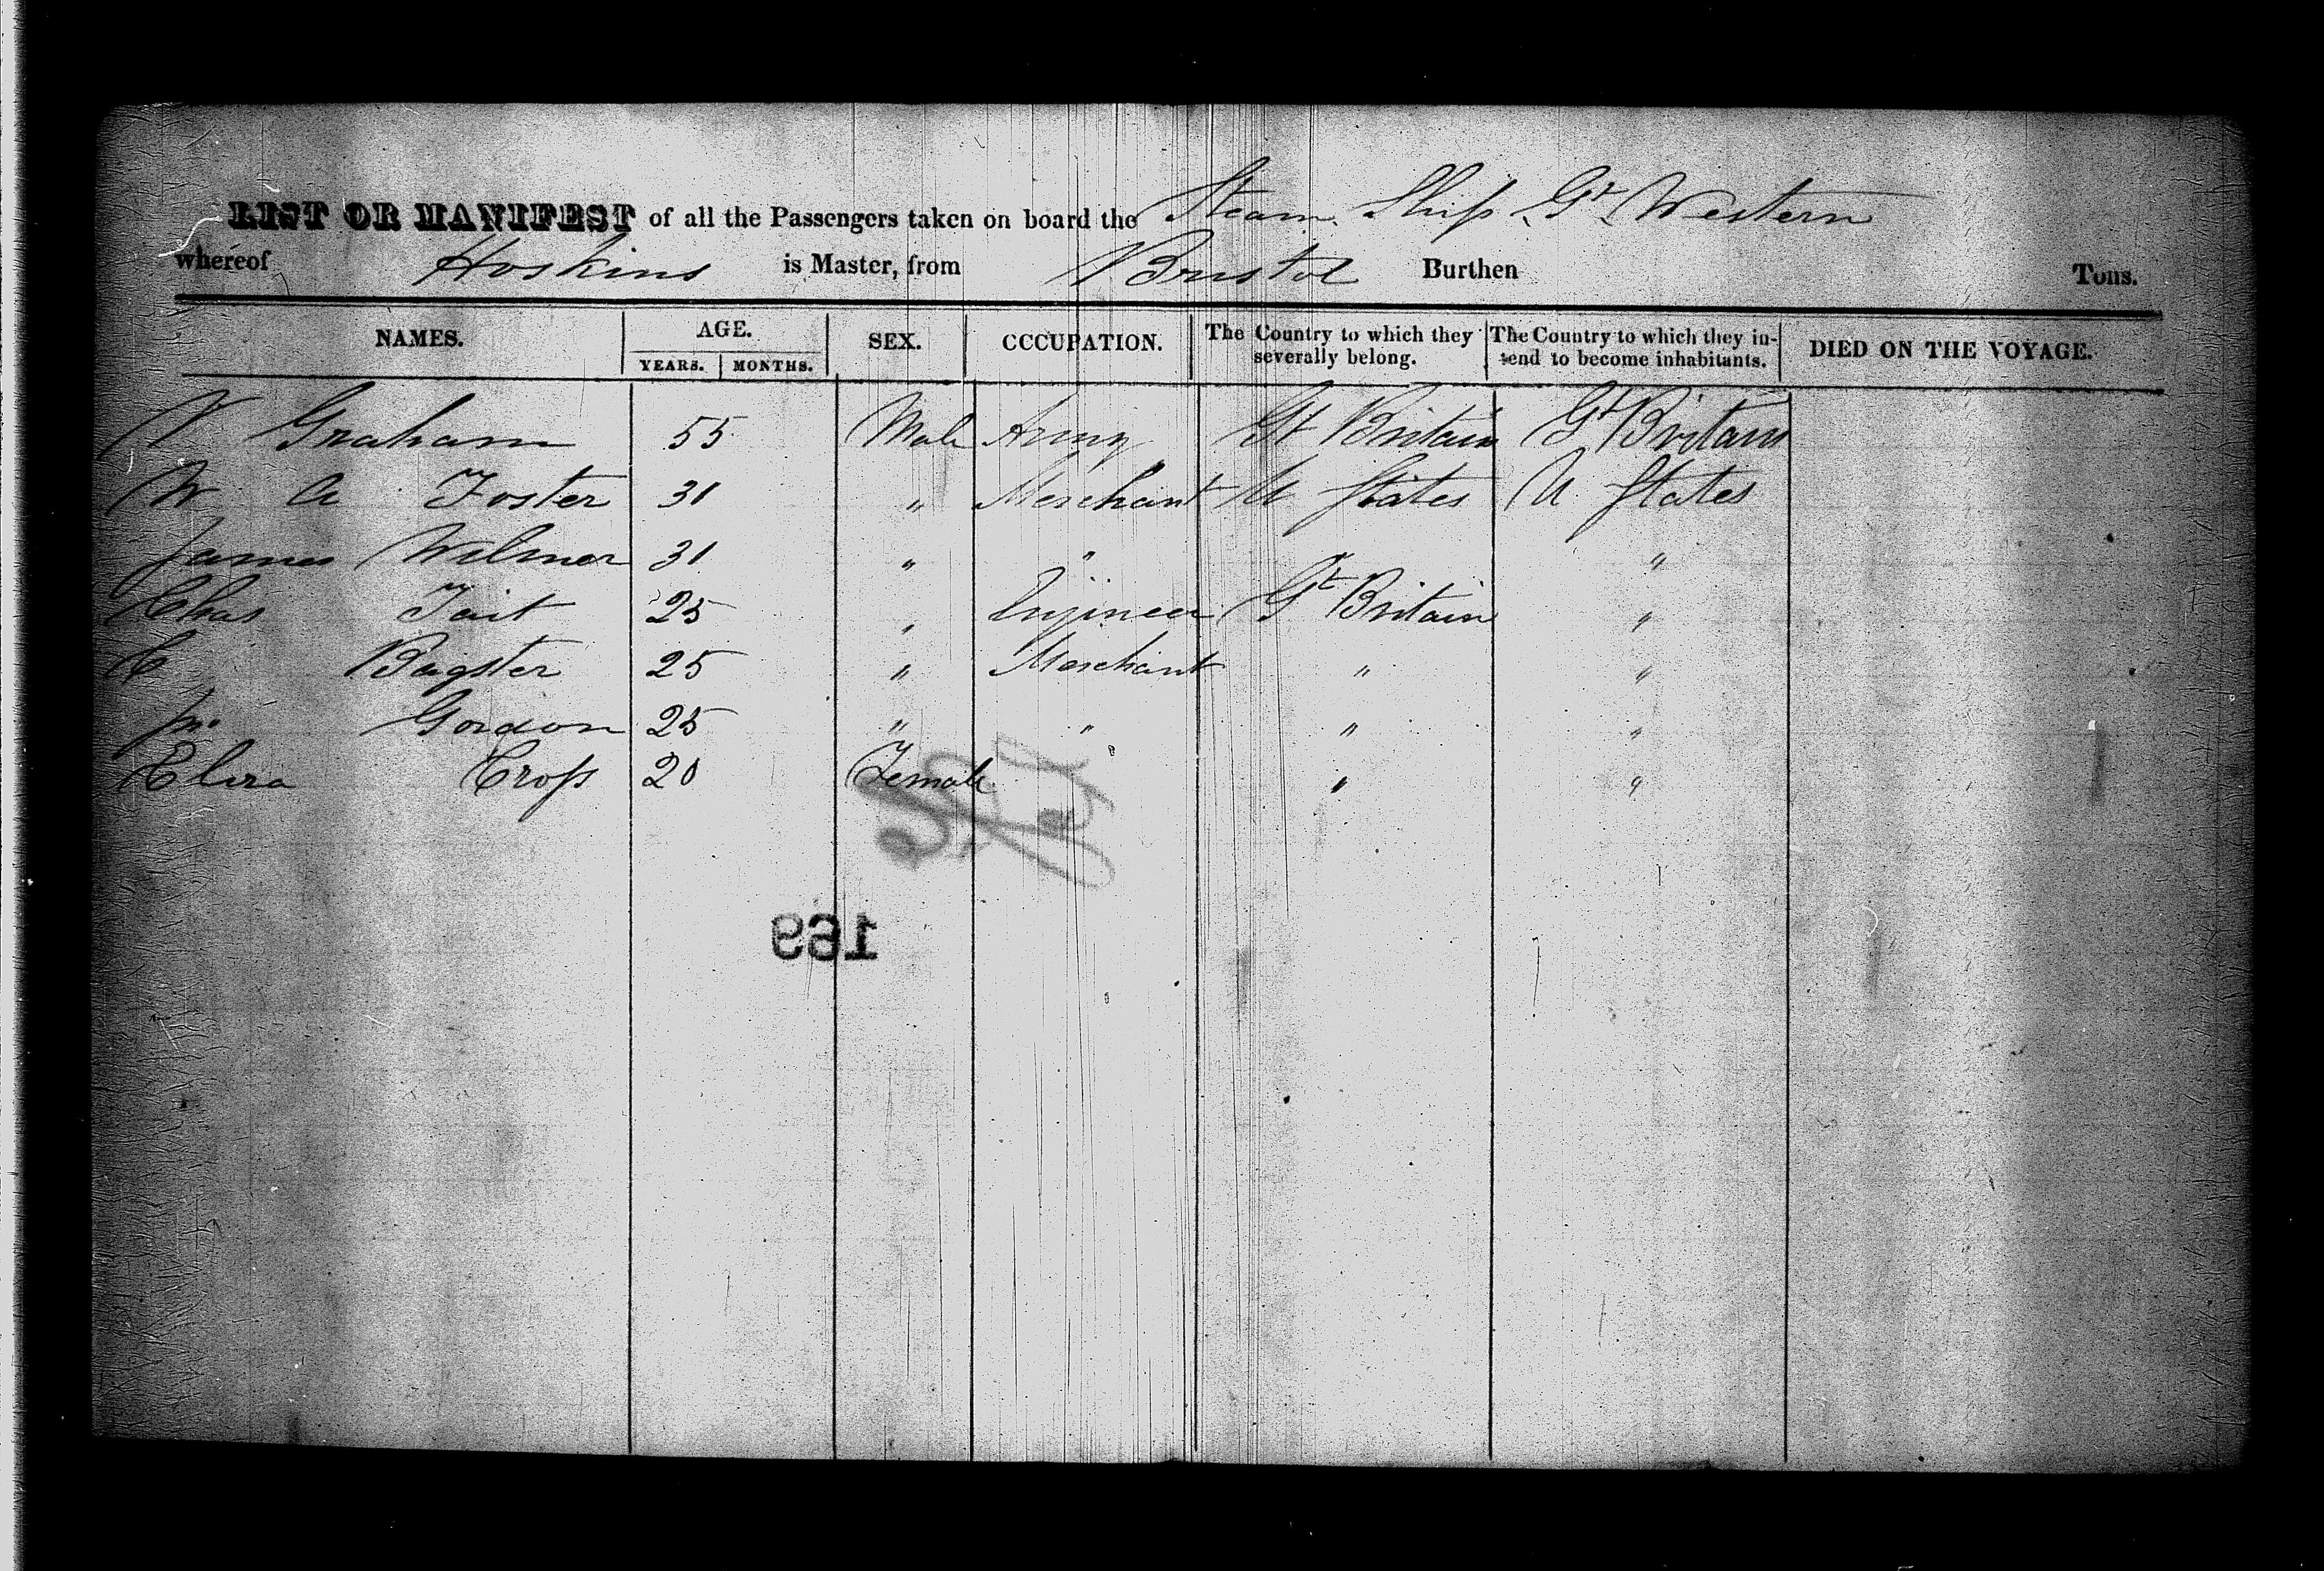 LIST OR MANIFEST of all the Passengers taken on board the Steam Ship Gt Western
whereof Hoskins is Master, from Bristol Burthen Tons.
NAMES. AGE. SEX. OCCUPATION. The Country to which they severally belong. The Country to which they intend to become inhabitants. DIED ON THE VOYAGE.
YEARS. MONTHS.
Graham 55 Male Army Gt Britain Gt Britain
W A Foster 31 " Merchant U States U States
James Wilmer 31 " " "
Chas Tait 25 " Engineer Gt Britain "
C Bagster 25 " Merchant " "
Jno Gordon 25 " " " "
Eliza Cross 20 Female " "
169